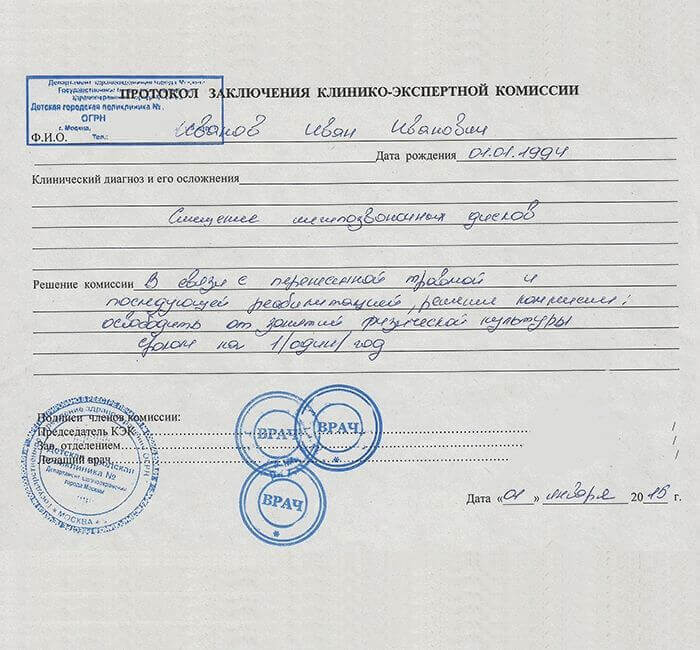 Департамент здравоохранения города Москвы
Государственное
здравоохранения
Детская городская поликлиника №
ОГРН
г. Москва,
Тел.:
ПРОТОКОЛ ЗАКЛЮЧЕНИЯ КЛИНИКО-ЭКСПЕРТНОЙ КОМИССИИ
Ф.И.О. Иванов Иван Иванович
Дата рождения 01.01.1994
Клинический диагноз и его осложнения
Смещение межпозвоночных дисков
Решение комиссии В связи с перенесенной травмой и
последующей реабилитацией, решение комиссии:
освободить от занятий физической культуры
сроком на 1/один/ год
Подписи членов комиссии:
Председатель КЭК
Зав. отделением
Лечащий врач
ВРАЧ
ВРАЧ
ВРАЧ
Детской городской
поликлиника №
Департамент здравоохранения
города Москвы
* МОСКВА *
Дата «01» января 2015 г.